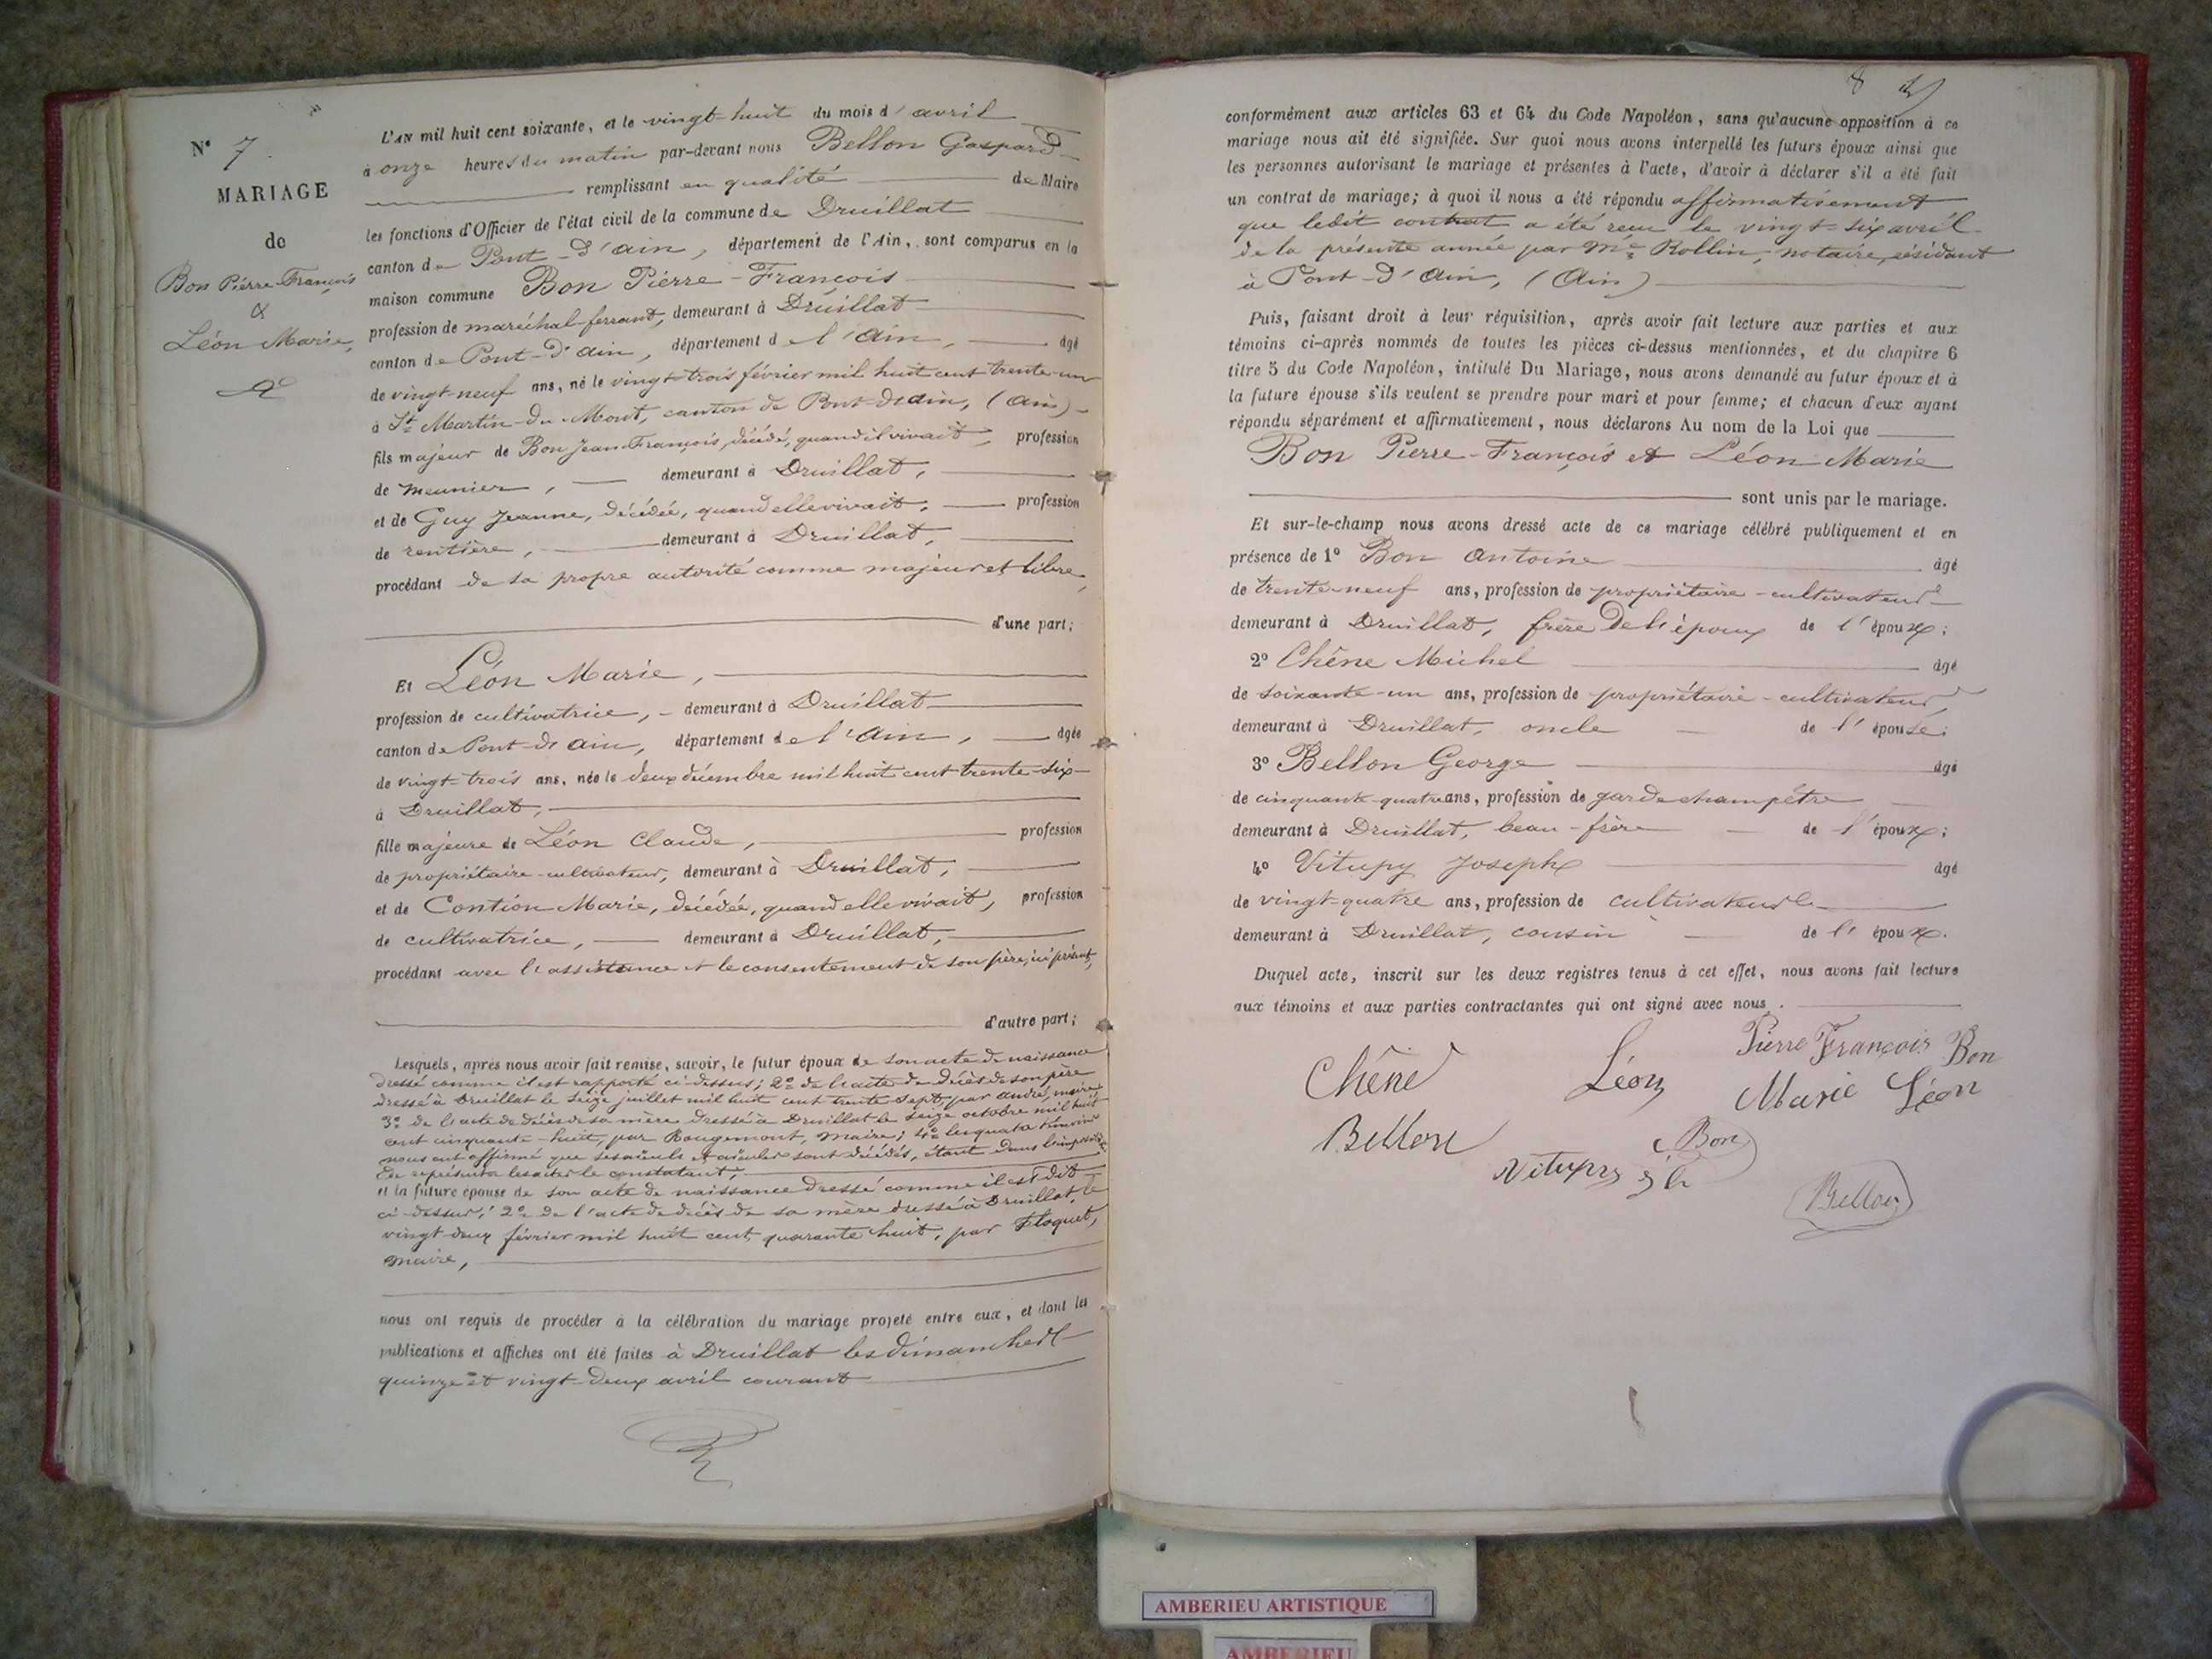 N° 7.
MARIAGE
de
Bon Pierre-François
&
Léon Marie,
L'AN mil huit cent soixante, et le vingt-huit du mois d'avril
à onze heures du matin par-devant nous Bellon Gaspard
remplissant en qualité de Maire
les fonctions d'Officier de l'état civil de la commune de Druillat
canton de Pont-d'ain, département de l'Ain, sont comparus en la
maison commune Bon Pierre-François
profession de maréchal-ferrant, demeurant à Druillat
canton de Pont-d'ain, département de l'Ain, âgé
de vingt-neuf ans, né le vingt-trois février mil huit cent trente-un
à St Martin-du-Mont, canton de Pont-d'ain, (Ain)
fils majeur de Bon Jean-François, décédé, quand il vivait, profession
de meunier, demeurant à Druillat,
et de Guy Jeanne, décédée, quand elle vivait, profession
de rentière, demeurant à Druillat,
procédant de sa propre autorité comme majeur et libre,
d'une part;
Et Léon Marie,
profession de cultivatrice, demeurant à Druillat
canton de Pont-d'ain, département de l'Ain, âgée
de vingt-trois ans, née le deux décembre mil huit cent trente-six
à Druillat,
fille majeure de Léon Claude, profession
de propriétaire-cultivateur, demeurant à Druillat,
et de Contion Marie, décédée, quand elle vivait, profession
de cultivatrice, demeurant à Druillat,
procédant avec l'assistance et le consentement de son père, ici présent,
d'autre part;
Lesquels, après nous avoir fait remise, savoir, le futur époux de son acte de naissance
dressé comme il est rapporté ci-dessus; 2° de l'acte de décès de son père
dressé à Druillat le seize juillet mil huit cent trente sept, par andré, maire
3° de l'acte de décès de sa mère dressé à Druillat le seize octobre mil huit
cent cinquante-huit, par Rougemont, maire; 4° les quatre témoins
nous ont affirmé que ses aïeuls et aïeules sont décédés, étant dans l'impossibilité
de représenter les actes le constatant;
et la future épouse de son acte de naissance dressé comme il est dit
ci-dessus; 2° de l'acte de décès de sa mère dressé à Druillat, le
vingt-deux février mil huit cent quarante-huit, par Floquet,
maire,
nous ont requis de procéder à la célébration du mariage projeté entre eux, et dont les
publications et affiches ont été faites à Druillat les dimanches
quinze et vingt-deux avril courant
8
conformément aux articles 63 et 64 du Code Napoléon, sans qu'aucune opposition à ce
mariage nous ait été signifiée. Sur quoi nous avons interpellé les futurs époux ainsi que
les personnes autorisant le mariage et présentes à l'acte, d'avoir à déclarer s'il a été fait
un contrat de mariage; à quoi il nous a été répondu affirmativement
que ledit contrat a été reçu le vingt-six avril
de la présente année par Me Rollin, notaire, résidant
à Pont-d'Ain, (Ain)
Puis, faisant droit à leur réquisition, après avoir fait lecture aux parties et aux
témoins ci-après nommés de toutes les pièces ci-dessus mentionnées, et du chapitre 6
titre 5 du Code Napoléon, intitulé Du Mariage, nous avons demandé au futur époux et à
la future épouse s'ils veulent se prendre pour mari et pour femme; et chacun d'eux ayant
répondu séparément et affirmativement, nous déclarons Au nom de la Loi que
Bon Pierre-François et Léon Marie
sont unis par le mariage.
Et sur-le-champ nous avons dressé acte de ce mariage célébré publiquement et en
présence de 1° Bon Antoine âgé
de trente-neuf ans, profession de propriétaire-cultivateur
demeurant à Druillat, frère de l'époux de l'époux;
2° Chêne Michel âgé
de soixante-un ans, profession de propriétaire-cultivateur,
demeurant à Druillat, oncle de l'épouse;
3° Bellon George âgé
de cinquante-quatre ans, profession de garde champêtre
demeurant à Druillat, beau-frère de l'époux;
4° Vitupy Joseph âgé
de vingt-quatre ans, profession de cultivateur
demeurant à Druillat, cousin de l'époux.
Duquel acte, inscrit sur les deux registres tenus à cet effet, nous avons fait lecture
aux témoins et aux parties contractantes qui ont signé avec nous.
Chêne Léon Pierre François Bon
Marie Léon
Bellon Bon
Vitupy
Bellon
AMBERIEU ARTISTIQUE
AMBERIEU